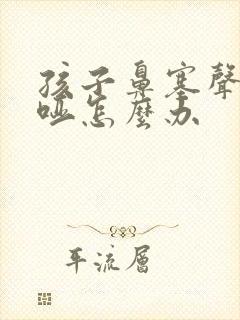 孩子鼻塞聲
啞怎麼办
平流層